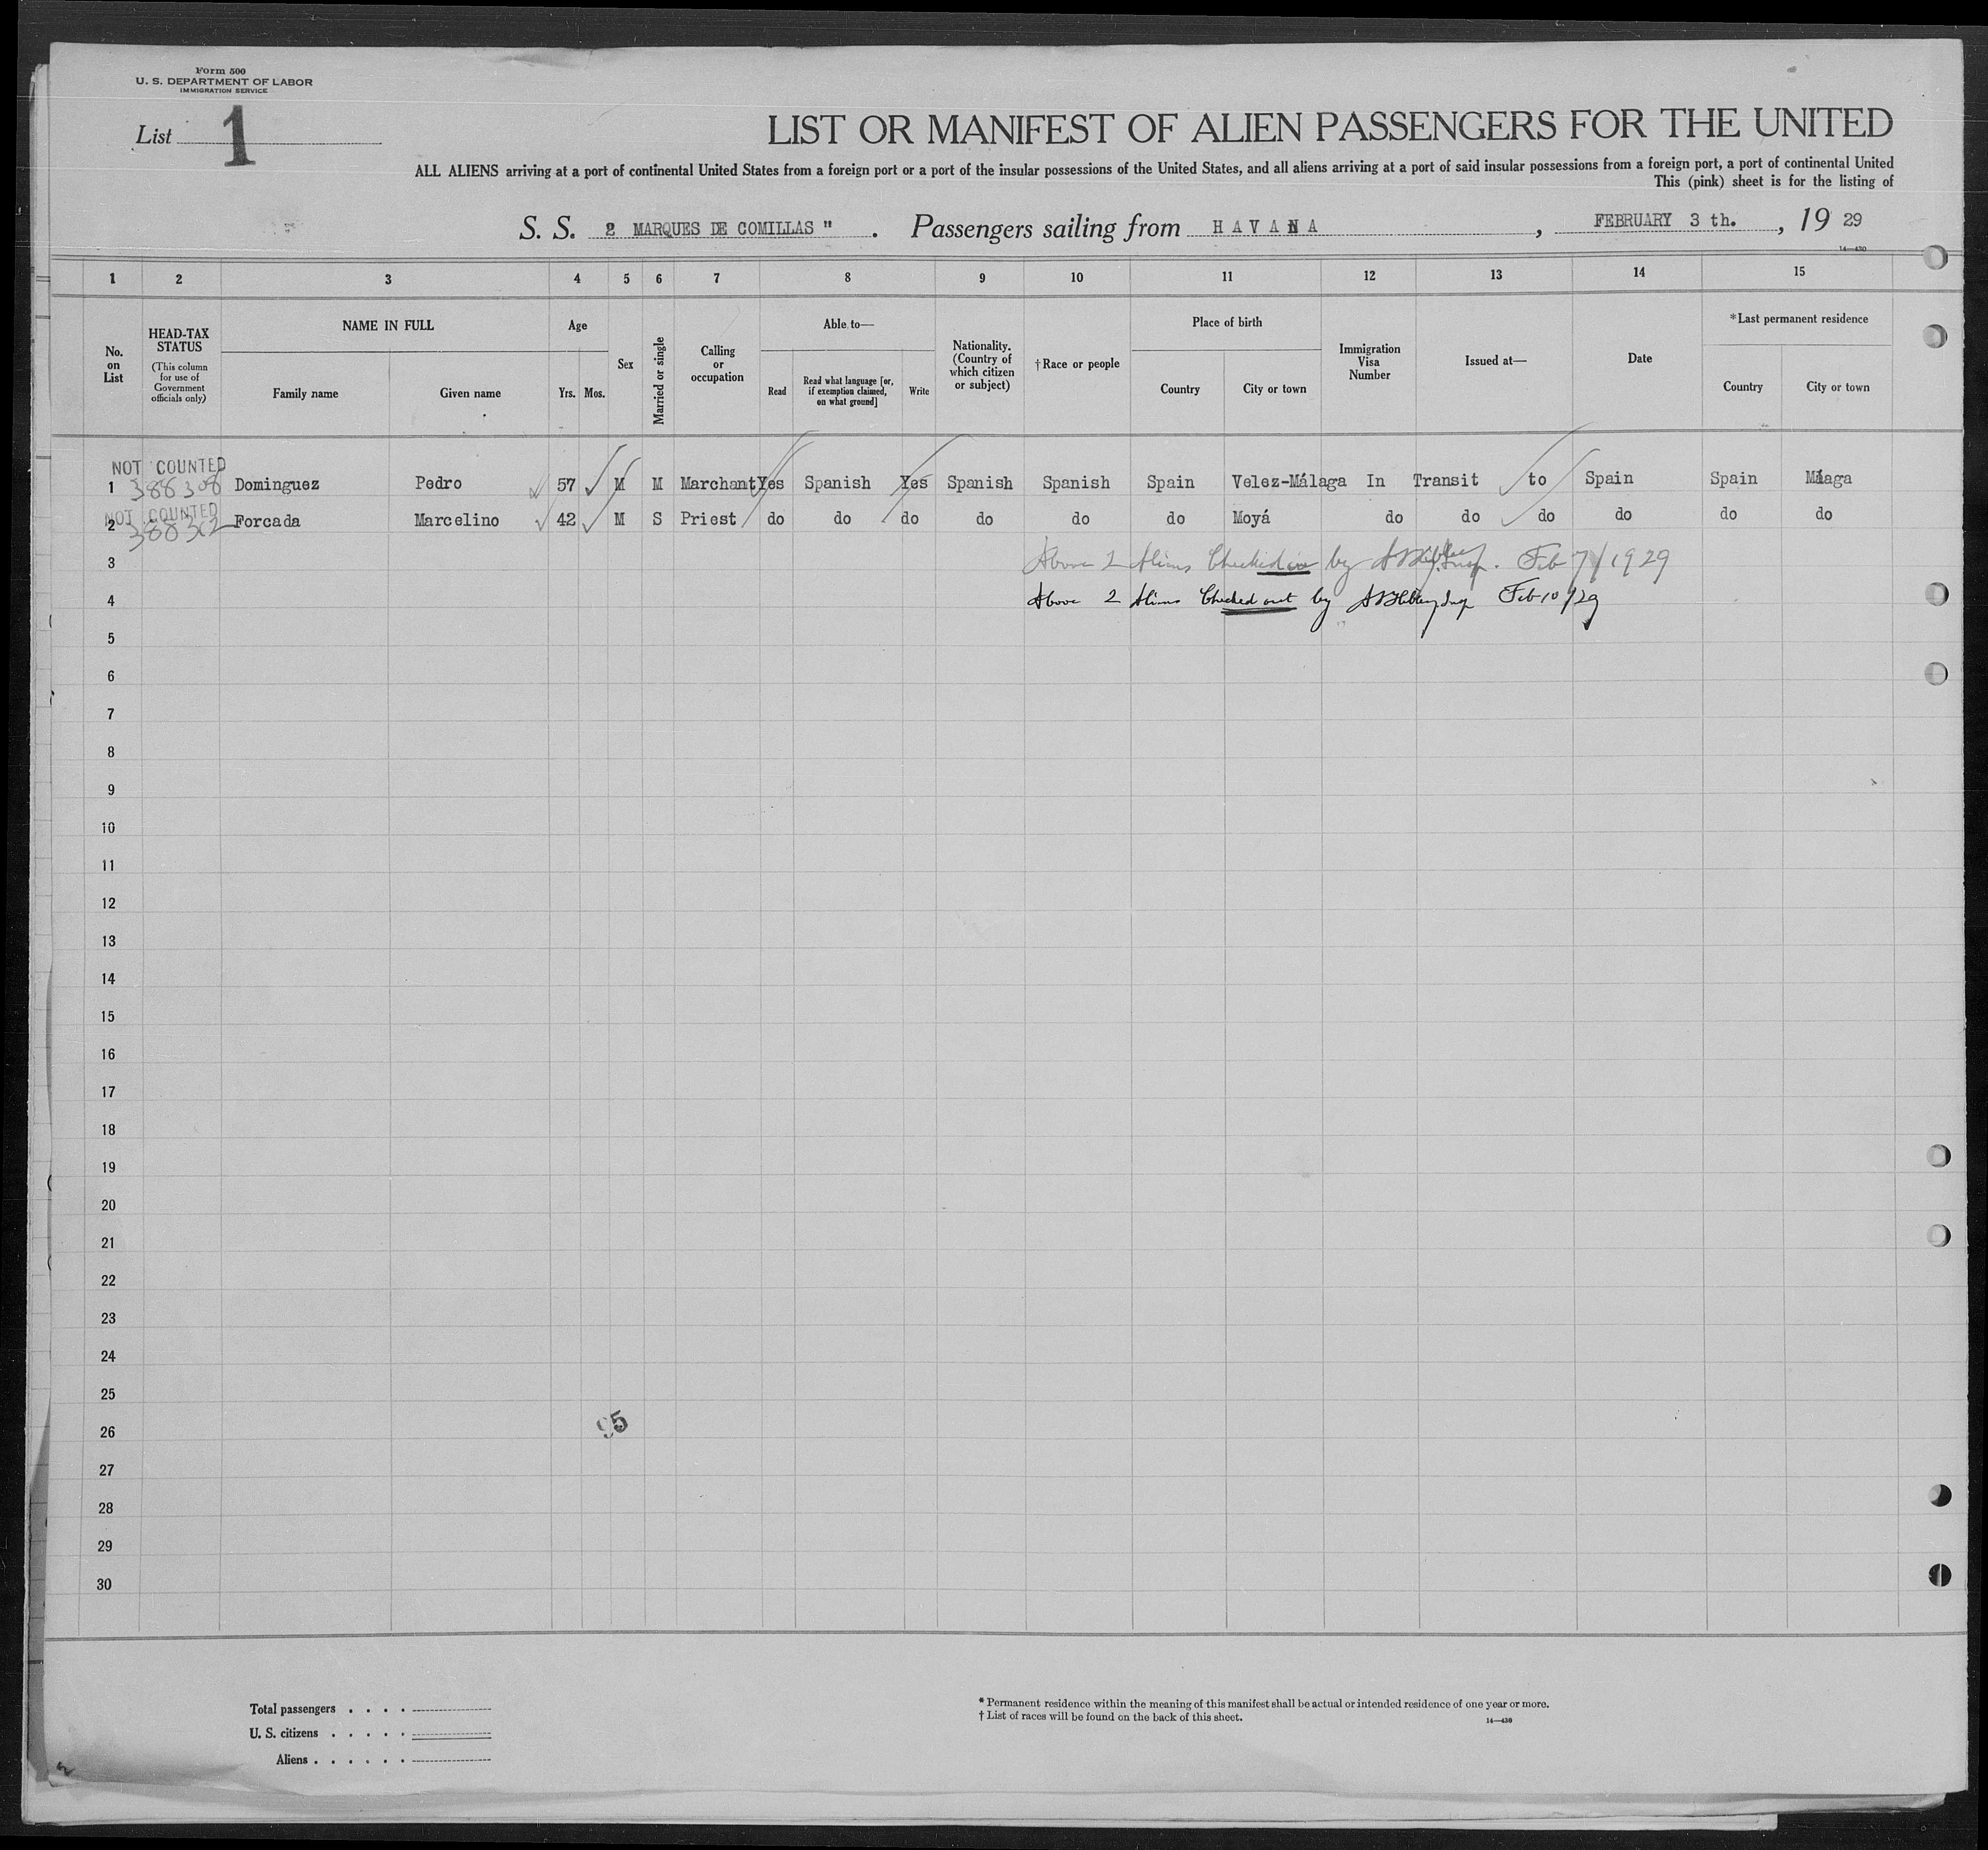 Form 500
U. S. DEPARTMENT OF LABOR
IMMIGRATION SERVICE
List 1
LIST OR MANIFEST OF ALIEN PASSENGERS FOR THE UNITED
ALL ALIENS arriving at a port of continental United States from a foreign port or a port of the insular possessions of the United States, and all aliens arriving at a port of said insular possessions from a foreign port, a port of continental United
This (pink) sheet is for the listing of
S. S. 2 MARQUES DE COMILLAS " . Passengers sailing from H A V A N A , FEBRUARY 3 th. , 19 29
14—430
1 2 3 4 5 6 7 8 9 10 11 12 13 14 15
No. on List
HEAD-TAX STATUS
(This column for use of Government officials only)
NAME IN FULL
Family name
Given name
Age
Yrs. Mos.
Sex
Married or single
Calling or occupation
Able to—
Read
Read what language [or, if exemption claimed, on what ground]
Write
Nationality. (Country of which citizen or subject)
†Race or people
Place of birth
Country
City or town
Immigration Visa Number
Issued at—
Date
*Last permanent residence
Country
City or town
NOT COUNTED
1 388308 Dominguez Pedro 57 M M Marchant Yes Spanish Yes Spanish Spanish Spain Velez-Málaga In Transit to Spain Spain Máaga
NOT COUNTED
2 Forcada Marcelino 42 M S Priest do do do do do do Moyá do do do do do do
3 Above 2 Aliens Checked in by Insp. Feb 7/1929
4 Above 2 Aliens Checked out by Insp Feb 10/29
5
6
7
8
9
10
11
12
13
14
15
16
17
18
19
20
21
22
23
24
25
95
26
27
28
29
30
Total passengers . . . .
U. S. citizens . . . . .
Aliens . . . . . .
* Permanent residence within the meaning of this manifest shall be actual or intended residence of one year or more.
† List of races will be found on the back of this sheet.
14—430